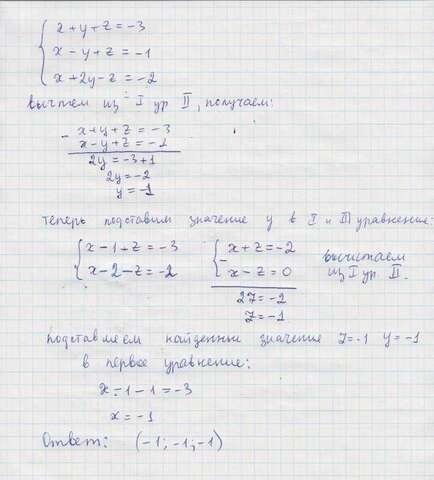 x+y+z=-3
x-y+z=-1
x+2y-z=-2
вычтем из I ур II, получаем:
- x+y+z=-3
x-y+z=-1
2y=-3+1
2y=-2
y=-1
теперь подставим значение y в I и III уравнение:
x-1+z=-3 x+z=-2 вычитаем
x-2-z=-2 - x-z=0 из I ур II.
2z=-2
z=-1
подставляем найденные значение z=-1 y=-1
в первое уравнение:
x-1-1=-3
x=-1
Ответ: (-1;-1;-1)